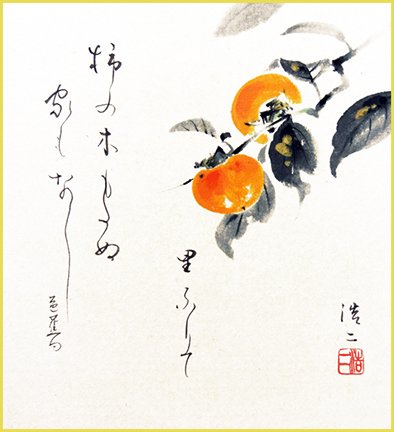 里ふりて
柿の木もたぬ
家もなし
芭蕉句
浩二
浩二